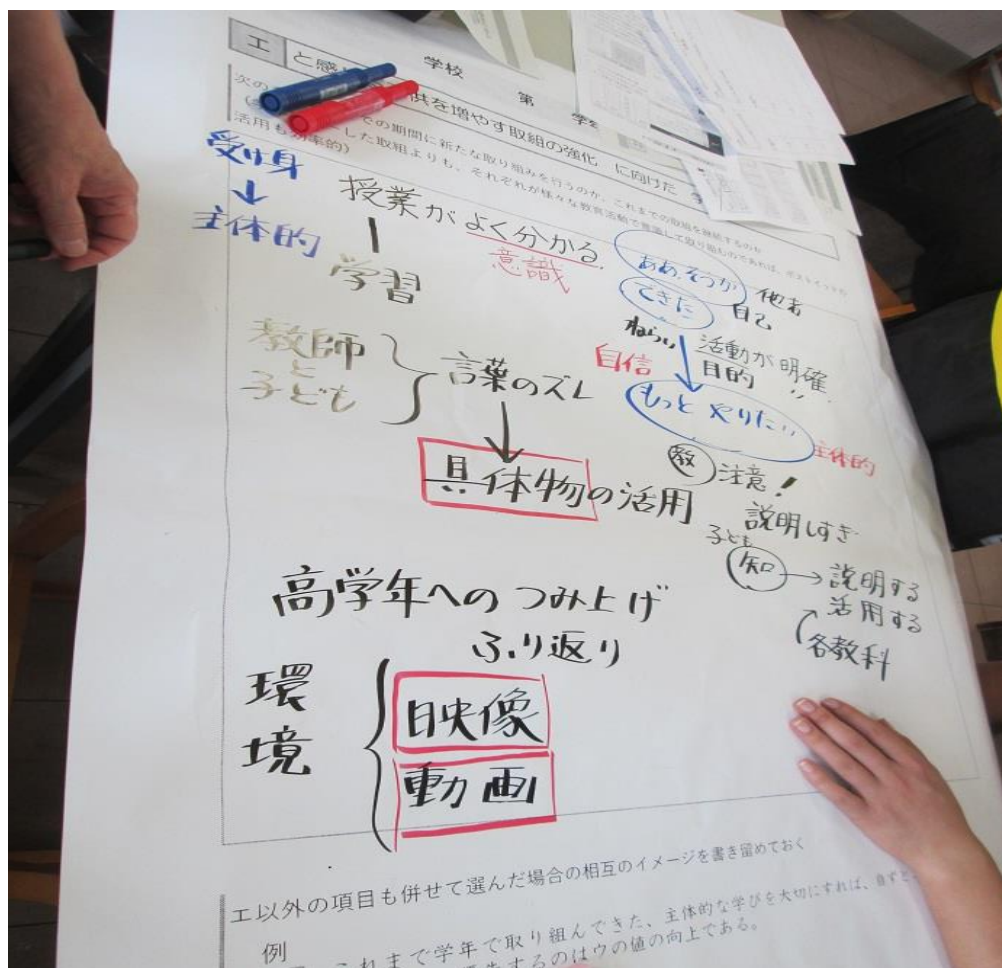 学校 第
エ と感 供を増やす取組の強化 に向けた
次の での期間に新たな取り組みを行うのか、これまでの取組を継続するのか
した取組よりも、それぞれが様々な教育活動で意識して取り組むものであれば、
活用も効率的)
受け身
↓
主体的
授業がよく分かる
意識
学習
教師
と
子ども
言葉のズレ
↓
具体物の活用
ああ、そうか 他者
できた 自己
ねらい
活動が明確
目的 !!
自信
もっとやりたい
主体的
教 注意!
説明しすぎ
子ども
知 → 説明する
活用する
各教科
高学年へのつみ上げ
ふり返り
環境
映像
動画
エ以外の項目も併せて選んだ場合の相互のイメージを書き留めておく
例
これまで学年で取り組んできた、主体的な学びを大切にすれば、自ずと
するのはウの値の向上である。